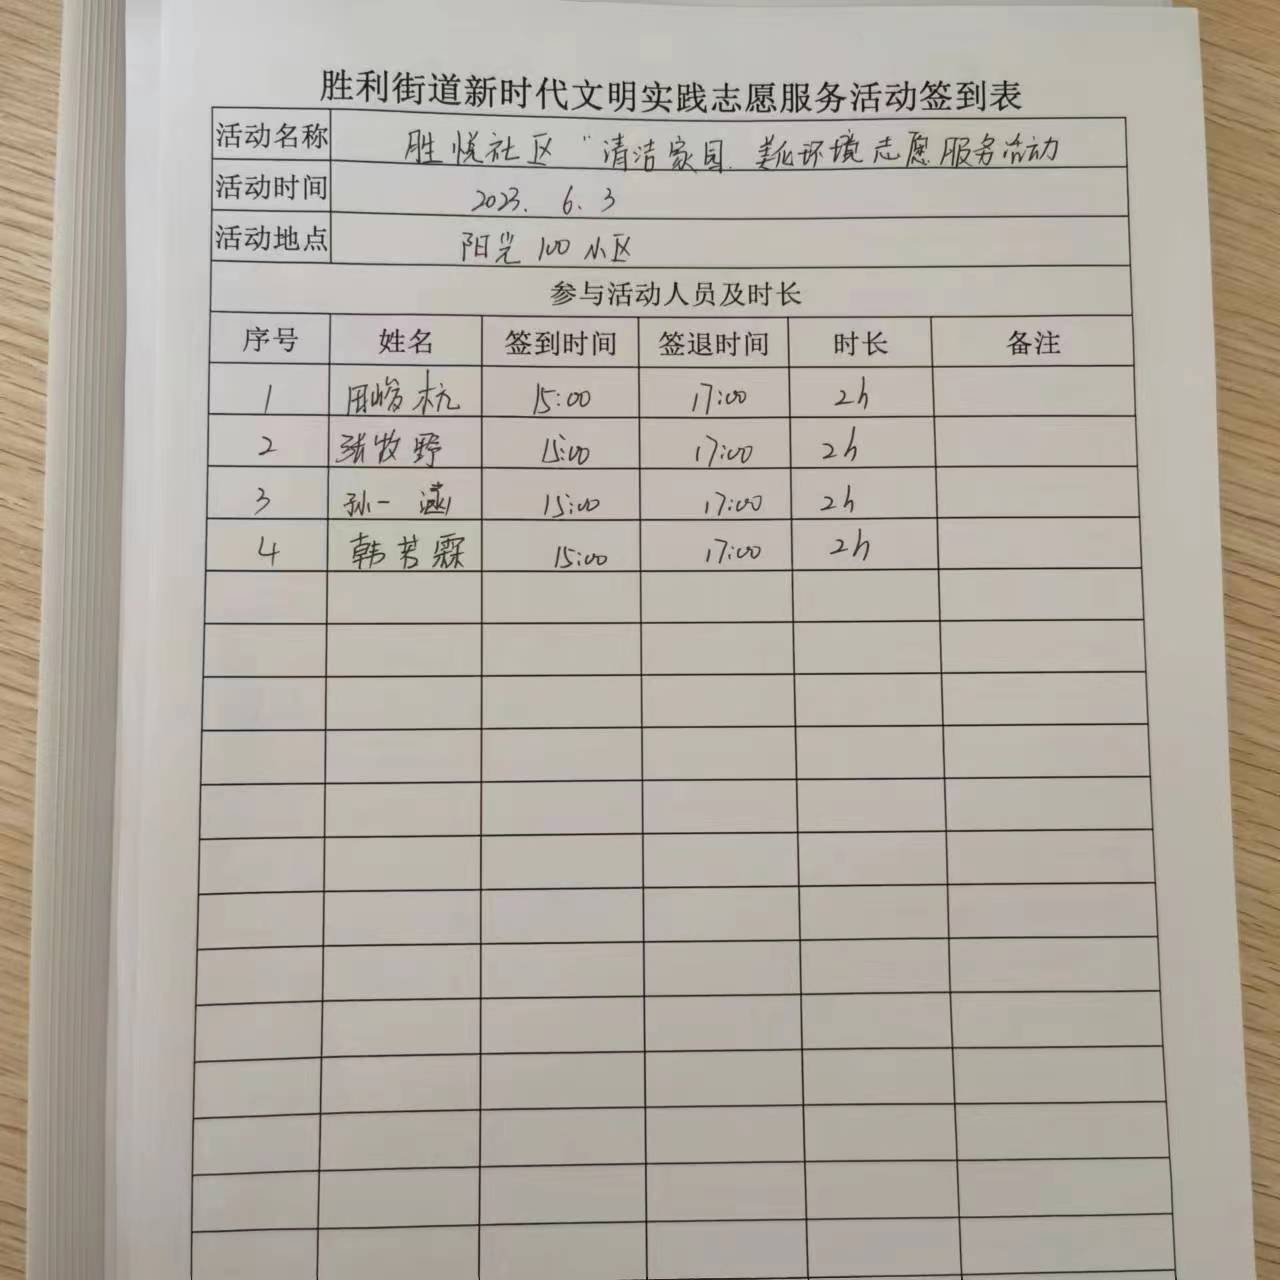 胜利街道新时代文明实践志愿服务活动签到表
活动名称 胜悦社区“清洁家园.美化环境志愿服务活动
活动时间 2023. 6. 3
活动地点 阳光100小区
参与活动人员及时长
序号 姓名 签到时间 签退时间 时长 备注
1 田峻杭 15:00 17:00 2h
2 张牧野 15:00 17:00 2h
3 孙一涵 15:00 17:00 2h
4 韩若霖 15:00 17:00 2h